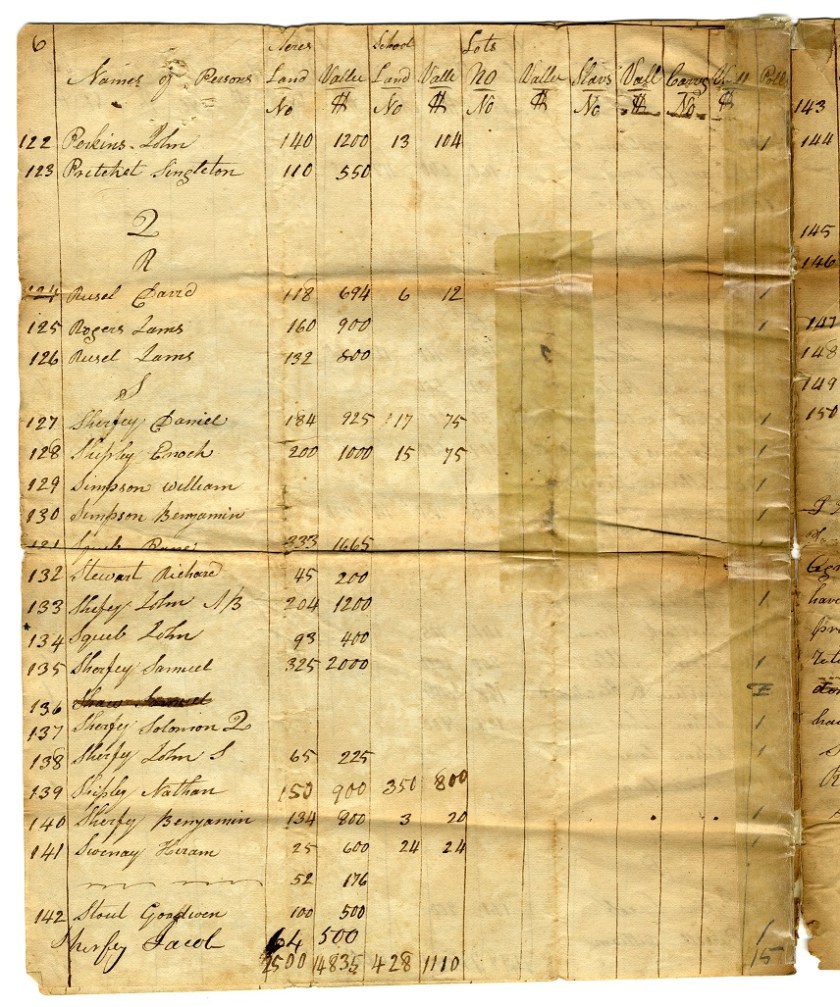 6 Acres School Lots
Names of Persons Land Vallu Land Valle No Vallu Slavs Vall Polls
No $ No $ No $ No $ No $
143
122 Perkins John 140 1200 13 104 1
144
123 Pritchet Singleton 110 550
Q
145
R
146
124 Rusel David 118 694 6 12 1
125 Rogers Jams 160 900 1
147
126 Rusel Jams 132 800
148
S
149
127 Sherfey Daniel 184 925 117 75 1
150
128 Shipley Enoch 200 1000 15 75 1
129 Simpson William 1
130 Simpson Benjamin 1
131 333 1665
132 Stewart Richard 45 200
133 Shefey John 204 1200 1
have
134 Squib John 93 400
135 Sherfey Samuel 325 2000 1
136
137 Sherfy Solomon 1
138 Sherfy John S 65 225 1
139 Shipley Nathan 150 900 350 800
140 Sherfy Benjamin 134 800 3 20 1
141 Swenay Hiram 25 600 24 24 1
52 176
142 Stout Gordwen 100 500
Sherfey Jacob 64 500 1
2500 14835 428 1110 15